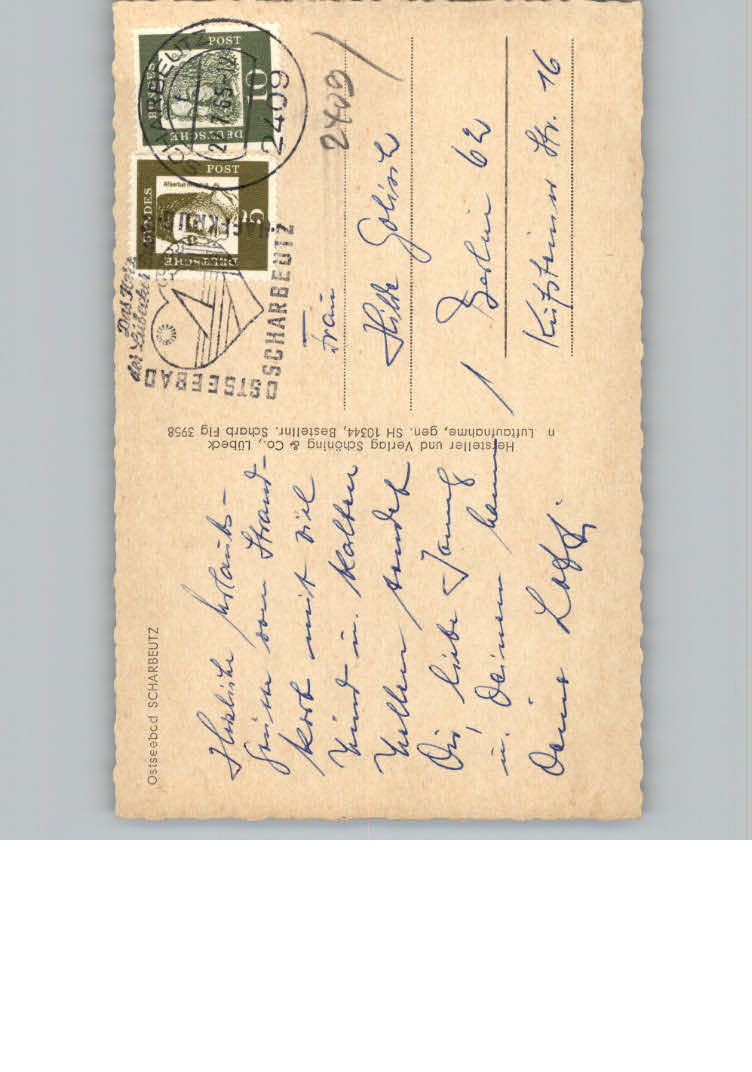 Ostseebad SCHARBEUTZ
Herzliche Urlaubs-
grüsse vom Strand-
korb mit viel
Wind u. kalten
Wellen sendet
Dir liebe
u. Deinem
Deine Lotti
Hersteller und Verlag Schöning & Co., Lübeck
n Luftaufnahme, gen. SH 10344, Bestellnr. Scharb Flg 3958
SCHARBEUTZ
2409
DEUTSCHE
BUNDES
POST
10
DEUTSCHE
BUNDES
POST
5
Das Herz
der Lübecker
OSTSEEBAD
SCHARBEUTZ
OSTSEEBAD
2409
Frau
Hilde
1 Berlin 62
Kufsteiner Str. 16